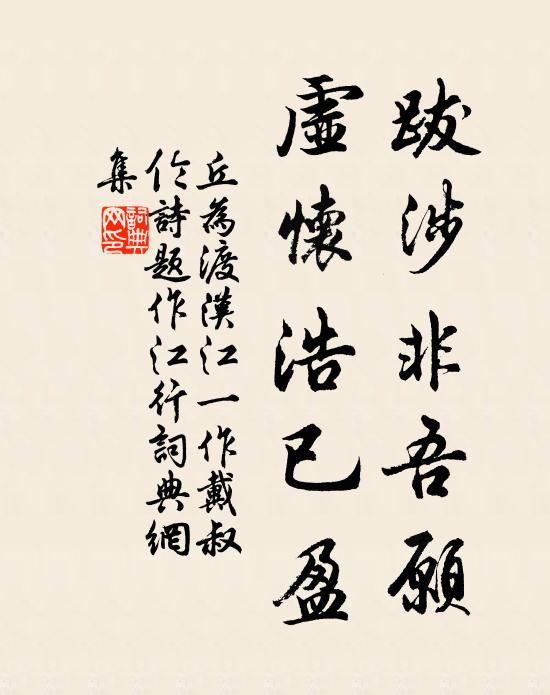 跋涉非吾願
虛懷浩已盈
丘為渡漢江一作戴叔
伦詩題作江行詞典網
集
詞典
网印